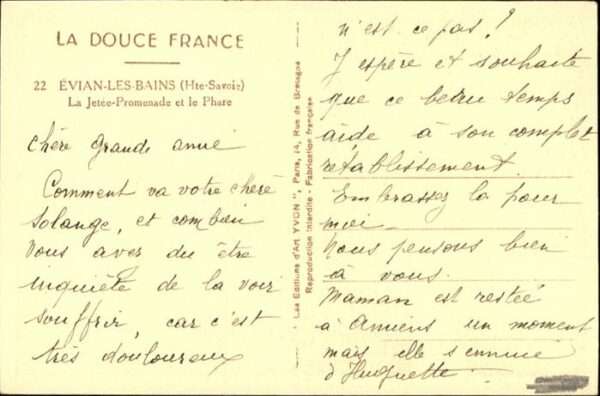 LA DOUCE FRANCE
22 ÉVIAN-LES-BAINS (Hte-Savoie)
La Jetée-Promenade et le Phare
chère grande amie
Comment va votre chère
Solange, et combien
vous avez du être
inquiète de la voir
souffrir, car c'est
très douloureux
Les Editions d'Art YVON", Paris, 14, Rue de Bretagne
Reproduction Interdite - Fabrication française
n'est ce pas?
J'espère et souhaite
que ce beau temps
aide à son complet
rétablissement.
Embrassez la pour
moi.
Nous pensons bien
à vous.
Maman est restée
à Amiens un moment
mais elle s'ennuie
d'Huguette.